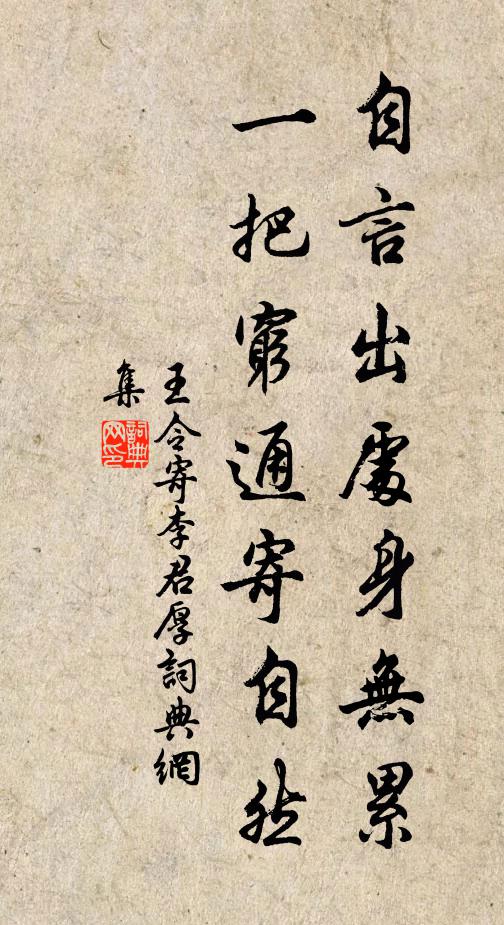 自言出處身無累
一把窮通寄自然
王令寄李君厚詞典網
集
詞典
网印